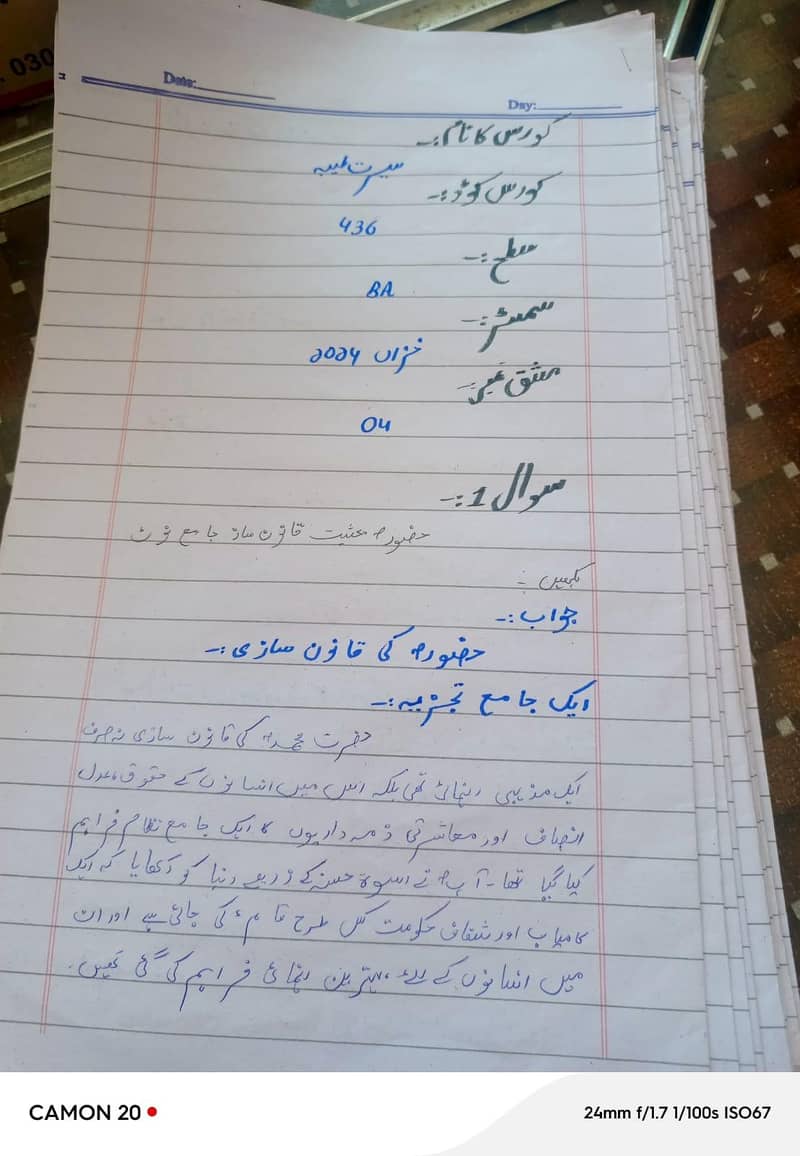 030
Date:
Day:
کورس کا نام:-
سیرت طیبہ
کورس کوڈ:-
436
سطح:-
BA
سمسٹر:-
خزاں 2024
مشق نمبر:-
04
سوال 1:-
حضورؐ بحثیت قانون ساز جامع نوٹ
لکھیں۔
جواب:-
حضورؐ کی قانون سازی:-
ایک جامع تجزیہ:-
حضرت محمدؐ کی قانون سازی نہ صرف
ایک مذہبی رہنمائی تھی بلکہ اس میں انسانوں کے حقوق، عدل
انصاف اور معاشرتی ذمہ داریوں کا ایک جامع نظام فراہم
کیا گیا تھا۔ آپؐ نے اسوۃ حسنہ کے ذریعے دنیا کو دکھایا کہ ایک
کامیاب اور شفاف حکومت کس طرح قائم کی جاتی ہے اور ان
میں انسانوں کے لئے بہترین رہنمائی فراہم کی گئی تھیں۔
CAMON 20
24mm f/1.7 1/100s ISO67